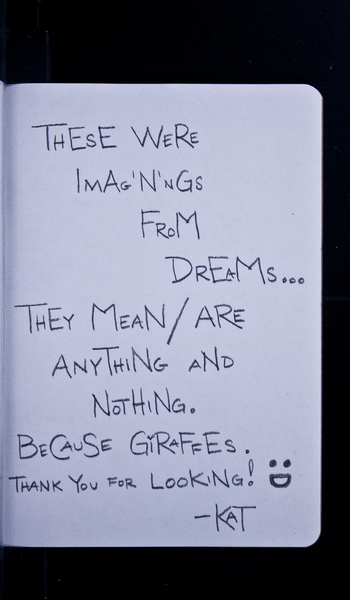 THESE WERE
IMAG'N'NGS
FROM
DREAMS...
THEY MEAN/ARE
ANYTHING AND
NOTHING.
BECAUSE GIRAFEES.
THANK YOU FOR LOOKING!
-KAT